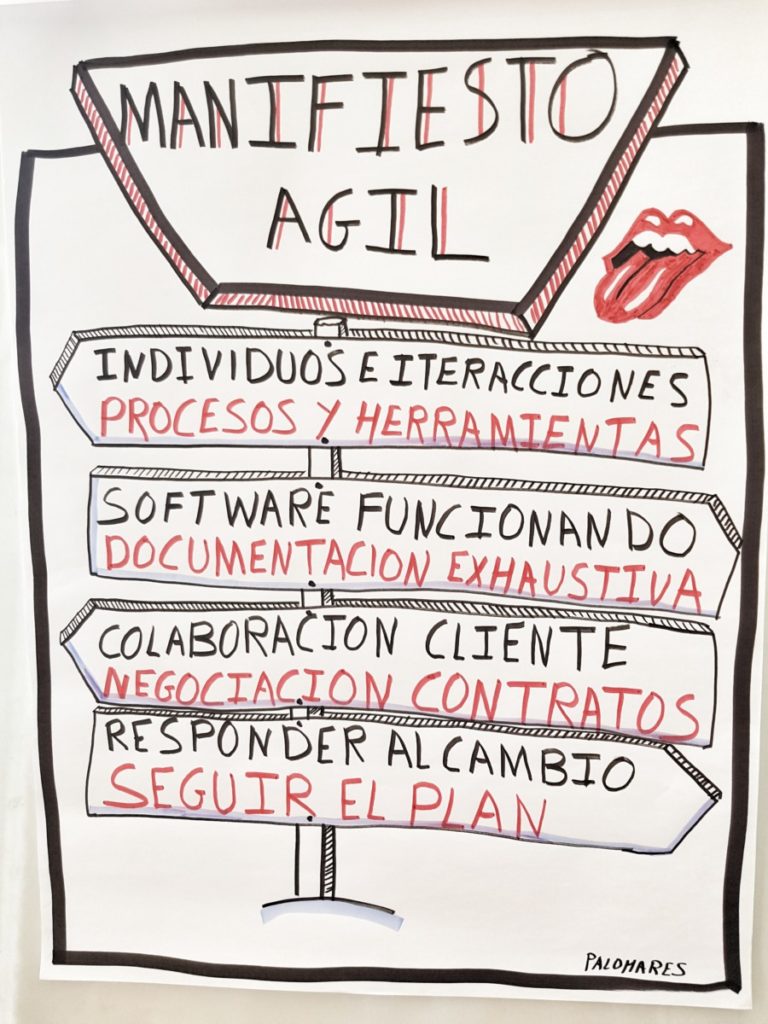 MANIFIESTO
AGIL
INDIVIDUOS E ITERACCIONES
PROCESOS Y HERRAMIENTAS
SOFTWARE FUNCIONANDO
DOCUMENTACION EXHAUSTIVA
COLABORACION CLIENTE
NEGOCIACION CONTRATOS
RESPONDER AL CAMBIO
SEGUIR EL PLAN
PALOMARES